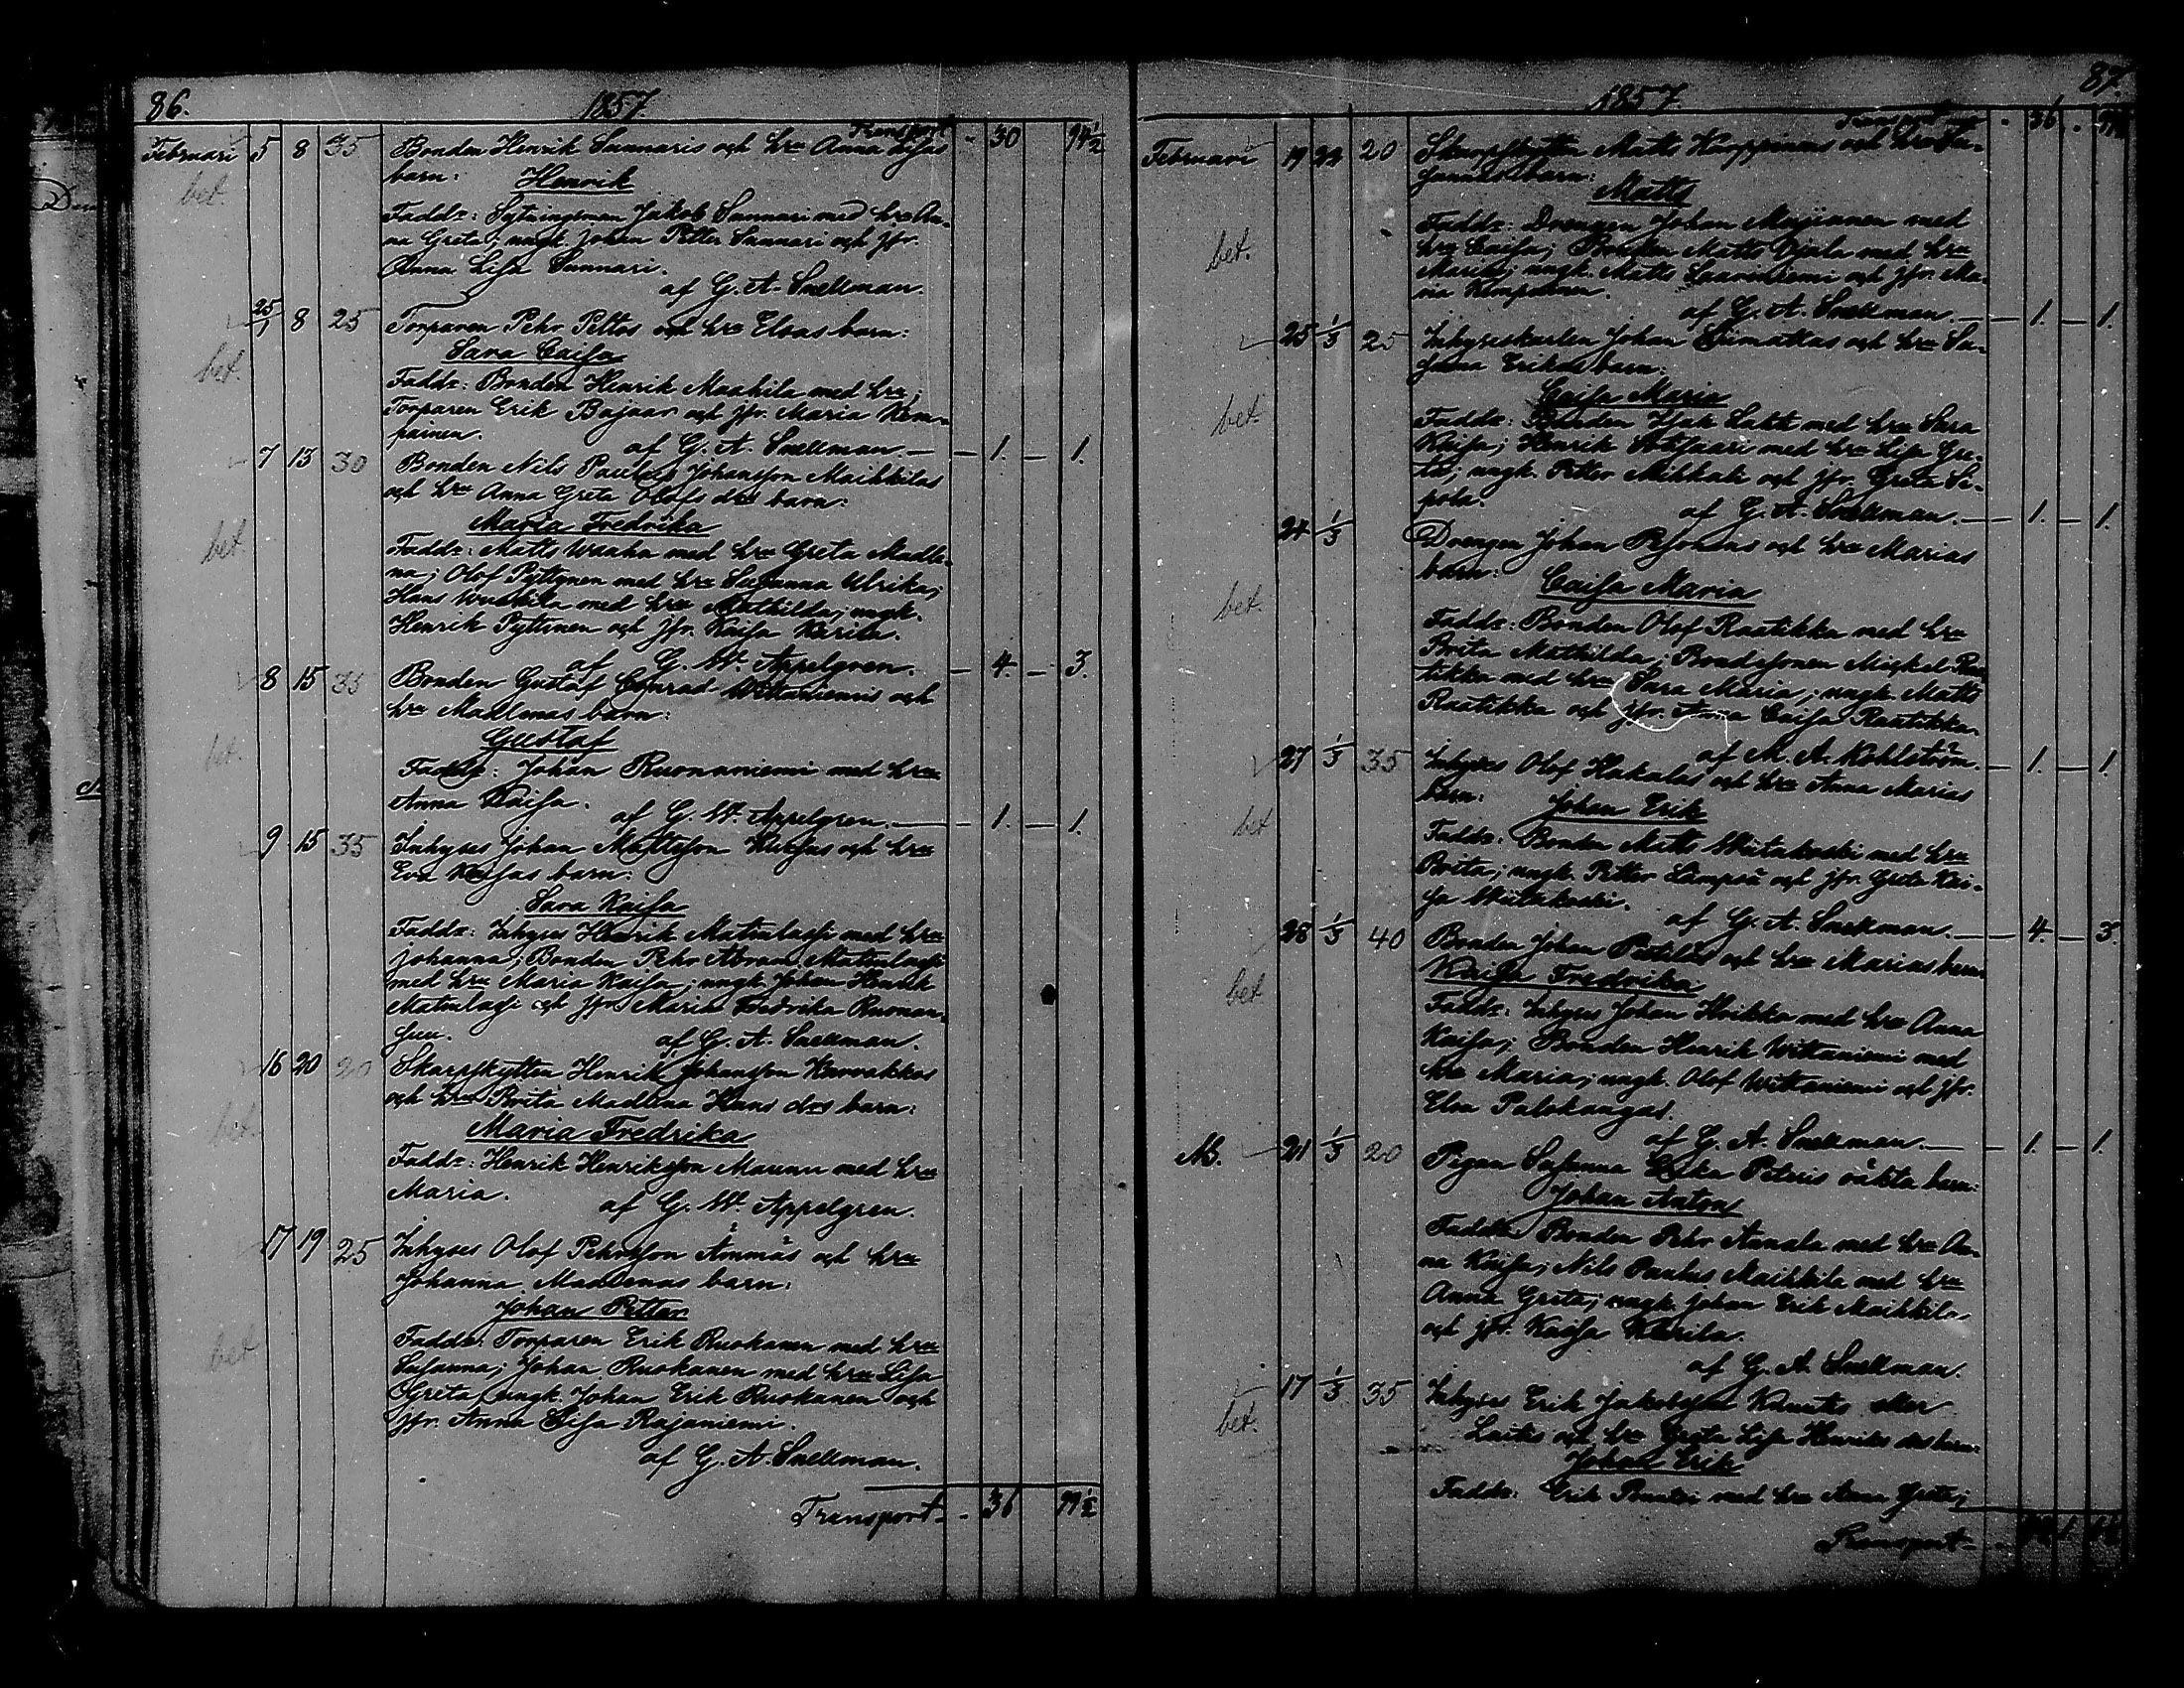 86. 1857.
Transport - 30 94½
Februari 5 8 35 Bonden Henrik Sunnaris och hru Anna Lisas
bet. barn: Henrik
Faddr: Sytningsman Jakob Sunnari med hru An-
na Greta; yngl. Johan Petter Sunnari och jfr.
Anna Lisa Sunnari.
af G. A. Snellman.
25/1 8 25 Torparen Pehr Pettos och hru Elsas barn:
bet. Sara Caisa
Faddr: Bonden Henrik Maahila med hru;
Torparen Erik Bajaar och jfr. Maria Kem-
painen.
af G. A. Snellman. — 1. — 1.
7 13 30 Bonden Nils Paulus Johansson Maikkilas
och hru Anna Greta Olofsdrs barn:
bet. Maria Fredrika
Faddr: Matts Waaha med hru Greta Madle-
na; Olof Pyttynen med hru Susanna Ulrika;
Hans med hru Mathilda; yngl.
Henrik Pyttynen och jfr. Kaisa Karila.
af G. W. Appelgren. — 4. — 3.
8 15 35 Bonden Gustaf Conrad Wittaniemis och
hru Madlenas barn:
bet. Gustaf
Faddr: Johan Ruonaniemi med hru
Anna Kaisa.
af G. W. Appelgren. — 1. — 1.
9 15 35 Inhyses Johan Mattsson och hru
Eva Kaisas barn:
Sara Kaisa
Faddr: Inhyses Henrik Matinlassi med hru
Johanna; Bonden Pehr Abram Matinlassi
med hru Maria Kaisa; yngl. Johan Henrik
Matinlassi och jfr Maria Fredrika Ruonan-
suu.
af G. A. Snellman.
16 20 20 Skarpskytten Henrik Johansson Karvakkas
och hru Brita Madlena Hans drs barn:
bet. Maria Fredrika
Faddr: Henrik Henriksson Maunu med hru
Maria.
af G. W. Appelgren.
17 19 25 Inhyses Olof Pehrsson Ämmäs och hru
Johanna Madlenas barn:
Johan Petter
bet Faddr: Torparen Erik Ruokanen med hru
Susanna; Johan Ruokanen med hru Lisa
Greta; yngl. Johan Erik Ruokanen och
jfr. Anna Lisa Rajaniemi.
af G. A. Snellman.
Transport - 36 99½
87.
1857.
Transport - 36. 99½
Februari 19 24 20 Skarpskytten Matts Karppinens och hru Su-
sannas barn:
Matts
bet. Faddr: Drengen Johan med
hru Caisa; Bonden Matts Ojala med hru
Maria; yngl. Matts Laariniemi och jfr. Ma-
ria Kempainen.
af G. A. Snellman. — 1. — 1.
25 1/3 25 Inhyseskarlen Johan Liimattas och hru Su-
sanna Eriks barn:
bet. Caisa Maria
Faddr: Bonden Isak Lakk med hru Sara
Kaisa; Henrik med hru Lisa Gre-
ta; yngl. Petter och jfr. Greta Si-
pola.
af G. A. Snellman. — 1. — 1.
24 1/3 Drengen Johan Pesonens och hru Marias
barn: Caisa Maria
bet. Faddr: Bonden Olof Raatikka med hru
Brita Mathilda; Bondesonen Michel Raa-
tikka med hru Sara Maria; yngl. Matts
Raatikka och jfr. Anna Caisa Raatikka.
af M. A. Kohlström. — 1. — 1.
27 1/3 35 Inhyses Olof Hakalas och hru Anna Marias
bet barn: Johan Erik
Faddr: Bonden Matts Wiitakoski med hru
Brita; yngl. Petter Lämpsä och jfr. Greta Kai-
sa Wiitakoski.
af G. A. Snellman. — 4. — 3.
28 1/3 40 Bonden Johan och hru Marias barn
bet Kaisa Fredrika
Faddr: Inhyses Johan Heikka med hru Anna
Kaisa; Bonden Henrik Wittaniemi med
hru Maria; yngl. Olof Wittaniemi och jfr.
Elsa Palokangas.
af G. A. Snellman. — 1. — 1.
NB. 21 1/3 20 Pigan Susanna Peteris oäkta barn:
Johan Anton
Faddr: Bonden Pehr Annala med hru An-
na Kaisa; Nils Paulus Maikkila med hru
Anna Greta; yngl. Johan Erik Maikkila
och jfr. Kaisa Karila.
af G. A. Snellman.
17 1/3 35 Inhyses Erik Jakobsson eller
bet. Laitis och hru Greta Lisa Henriks drs barn:
Johan Erik
Faddr: Erik med hru Anna Greta;
Transport -